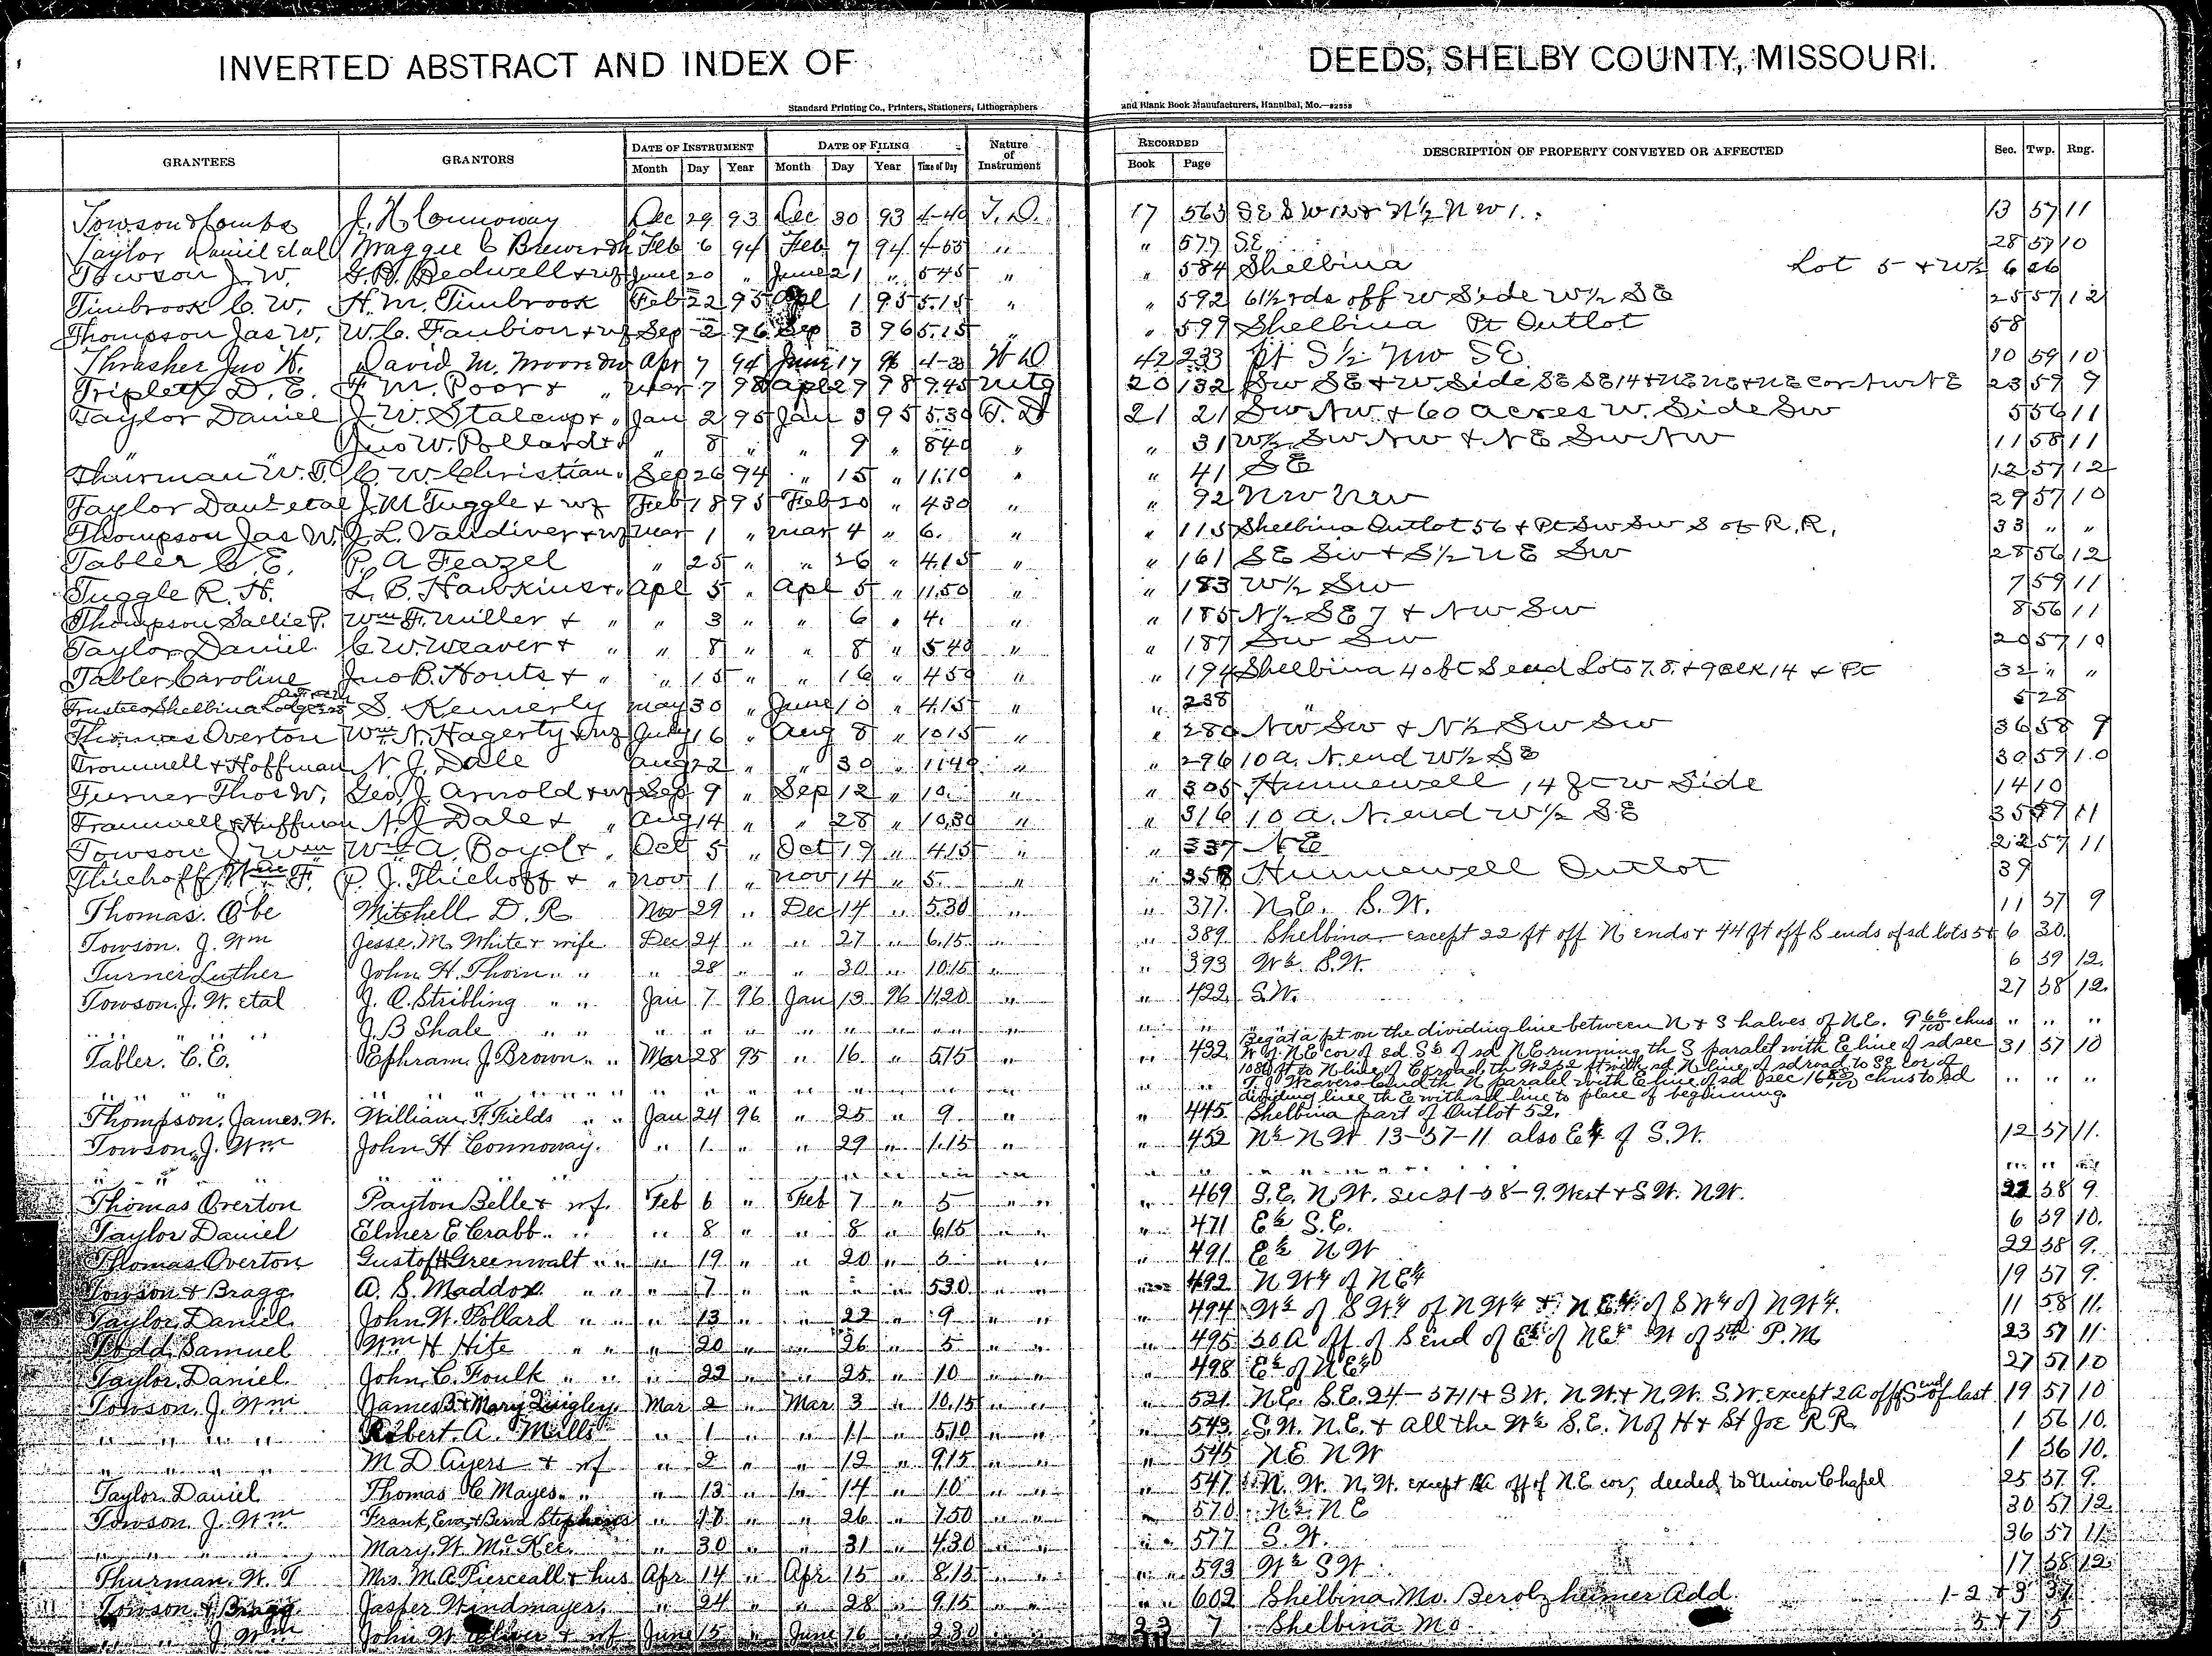 INVERTED ABSTRACT AND INDEX OF DEEDS, SHELBY COUNTY, MISSOURI.
Standard Printing Co., Printers, Stationers, Lithographers and Blank Book Manufacturers, Hannibal, Mo.
GRANTEES GRANTORS DATE OF INSTRUMENT DATE OF FILING Nature of Instrument RECORDED DESCRIPTION OF PROPERTY CONVEYED OR AFFECTED Sec. Twp. Rng.
Month Day Year Month Day Year Time of Day Book Page
Towson & Combs J. H. Connoway Dec 29 93 Dec 30 93 4-40 T.D. 17 563 13 57 11
Taylor Daniel etal Maggie C Feb 6 94 Feb 7 94 " " 577 SE 28 57 10
Towson J. W. Bedwell & wf June 20 " June 21 " 545 " " 584 Shelbina Lot 5 & W½ 6 26
Timbrook C. W. H. M. Timbrook Feb 22 95 Apl 1 95 5.15 " " 592 61½ rds off W Side W½ SE 25 57 12
Thompson Jas W. W. C. Faubion & wf Sep 2 96 Sep 3 96 5.15 " " 599 Shelbina Pt Outlot 58
Thrasher Jno H. David M. Moore Apr 7 94 June 17 96 W D 42 233 Pt S½ NW SE 10 59 10
Triplett D. E. F. M. Poor & " Mar 7 98 9 98 9.45 Mtg 20 132 SW SE & W. Side SE SE 14 & NE NE & NE cor 23 59 9
Taylor Daniel J. W. Stalcup & " Jan 2 95 Jan 3 95 5.30 T. D 21 21 SW NW & 60 acres W. Side SW 5 56 11
" " Jno W. Pollard & " " 8 " " 9 " 840 " " 31 W½ SW NW & NE SW NW 11 58 11
Thurman W. T. C. W. Christian Sep 26 94 " 15 " 11.10 " " 41 SE 12 57 12
Taylor Danl etal J. M Tuggle & wf Feb 18 95 Feb 20 " 430 " " 92 NW NW 29 57 10
Thompson Jas W. J. L. Vandiver & wf Mar 1 " Mar 4 " 6. " " 115 Shelbina Outlot 56 & Pt SW SW S of R.R. 33 " "
Tabler C. E. P. A Feazel " 25 " " 26 " 4.15 " " 161 SE SW & S½ NE SW 28 56 12
Tuggle R. H. L. B. Hawkins & " Apl 5 " Apl 5 " 11.50 " " 183 W½ SW 7 59 11
Thompson Sallie P. Wm F. Miller & " " 3 " " 6 " 4. " " 185 N½ SE 7 & NW SW 8 56 11
Taylor Daniel C. W. Weaver & " " 8 " " 8 " 540 " " 187 SW SW 20 57 10
Tabler Caroline Jno B. Houts & " " 15 " " 16 " 450 " " 194 Shelbina 40 ft S end Lots 7, 8, & 9 Blk 14 & Pt 32 " "
Trustees Shelbina S. Kennerly May 30 " June 10 " 4.15 " " 238 " 5 28
Thomas Overton Wm N. Hagerty & wf July 16 " Aug 8 " 1015 " " 280 NW SW & N½ SW SW 36 58 9
Trommell & Hoffman N. J. Dale Aug 22 " " 30 " 1140 " " 296 10 a. N. end W½ SE 30 59 10
Turner Thos W. Geo. J. Arnold & wf Sep 9 " Sep 12 " 10. " " 305 Hunnewell 14 ft W Side 14 10
Tramwell & Huffman N. J Dale & " Aug 14 " " 28 " 10.30 " " 316 10 a. N. end W½ SE 11
Towson J Wm Wm A. Boyd & " Oct 5 " Oct 19 " 4.15 " " 337 NE 22 57 11
Thiehoff Wm F. P. J. Thiehoff & " Nov 1 " Nov 14 " 5. " " 358 Hunnewell Outlot 39
Thomas. Obe Mitchell D. R. Nov 29 " Dec 14 " 5.30 " " 377 N.E. S.W. 11 57 9
Towson. J. Wm Jesse. M. White & wife Dec 24 " " 27 " 6.15 " " 389 Shelbina except 22 ft off N ends & 44 ft off S ends of sd lots 5 & 6 30
Turner Luther John H. Thoin " " " 28 " " 30 " 10.15 " " 393 W½ S.W. 6 59 12
Towson, J. W. etal J. O. Stribling " " Jan 7 96 Jan 13 96 11.20 " " 422 S.W. 27 58 12
" " " " J. B Shale " " " " " " " " " " " " " " " "
Tabler. C. E. Ephram. J. Brown " " Mar 28 95 " 16. " 515 " " 432 Beg at a pt on the dividing line between N & S halves of N.E. 9 66/100 chns 31 57 10
W of NE cor of sd S½ of sd NE running th S paralel with E line of sd sec
1080 ft to N line of C road, th W 252 ft with sd N line of sd road to SE cor of
T. J. Weavers land th N paralel with E line of sd sec 16 chns to sd
dividing line th E with sd line to place of beginning.
Thompson, James. W. William. F. Fields " " Jan 24 96 " 25 " 9 " " 445 Shelbina part of Outlot 52.
Towson, J. Wm John H Connoway. " 1 " " 29 " 1.15 " " 452 N½ N.W. 13-57-11 also E½ of S.W. 12 57 11
Thomas Overton Payton Belle & wf. Feb 6 " Feb 7 " 5 " " 469 S.E. N.W. Sec 21-58-9. West & S.W. N.W. 22 58 9
Taylor Daniel Elmer E Crabb " " " 8 " " 8 " 615 " " 471 E½ S.E. 6 59 10.
Thomas Overton Gustof H Greenwalt " " " 19 " " 20 " 5 " " 491 E½ N W 22 58 9.
Towson & Bragg A. S. Maddox " " " 7 " " " " 530 " " 492 N W¼ of N E¼ 19 57 9.
Taylor, Daniel John W. Pollard " " " 13 " " 22 " 9 " " 494 W½ of S W¼ of N W¼ & N E¼ of S W¼ of N W¼. 11 58 11.
Todd, Samuel Wm H Hite " " " 20 " " 26 " 5 " " 495 30 A off of S end of E½ of N E¼ W of 5th P.M 23 57 11
Taylor, Daniel John, C. Foulk " " " 22 " " 25 " 10 " " 498 E½ of N E¼ 27 57 10
Towson, J. Wm James B & Mary Quigley Mar 2 " Mar 3 " 10.15 " " 521 N.E. S.E. 24-57 11 & S W. N W. & N.W. S.W. except 2 A off S end of last 19 57 10
" " " " Robert. A. Mills " 1 " " 11 " 5.10 " " 543 S.W. N.E. & all the W½ S.E. N of H & St Joe R R 1 56 10.
" " " " M D Ayers & wf " 2 " " 12 " 9.15 " " 545 N E N W 1 56 10.
Taylor Daniel Thomas C Mayes " " " 13 " " 14 " 10 " " 547 N. W. N. W. except off of N.E cor, deeded to Union Chapel 25 57 9.
Towson, J. Wm Frank, Eva, & Bena Stephens " 18 " " 26 " 750 " " 570 N½ N E 30 57 12
" " " " Mary. W. McKee. " 30 " " 31 " 430 " " 577 S. W. 36 57 11
Thurman. W. T Mrs. M. A. Pierceall & hus Apr 14 " Apr 15 " 8.15 " " 593 W½ S W 17 58 12
Towson & Bragg Jasper Windmayer, " 24 " " 28 " 9.15 " " 602 Shelbina, Mo. Berolzheimer Add. 1-2 & 3 37
" " J. Wm John W. & wf June 15 " June 16 " 230 " 23 7 Shelbina Mo 5 & 7 5